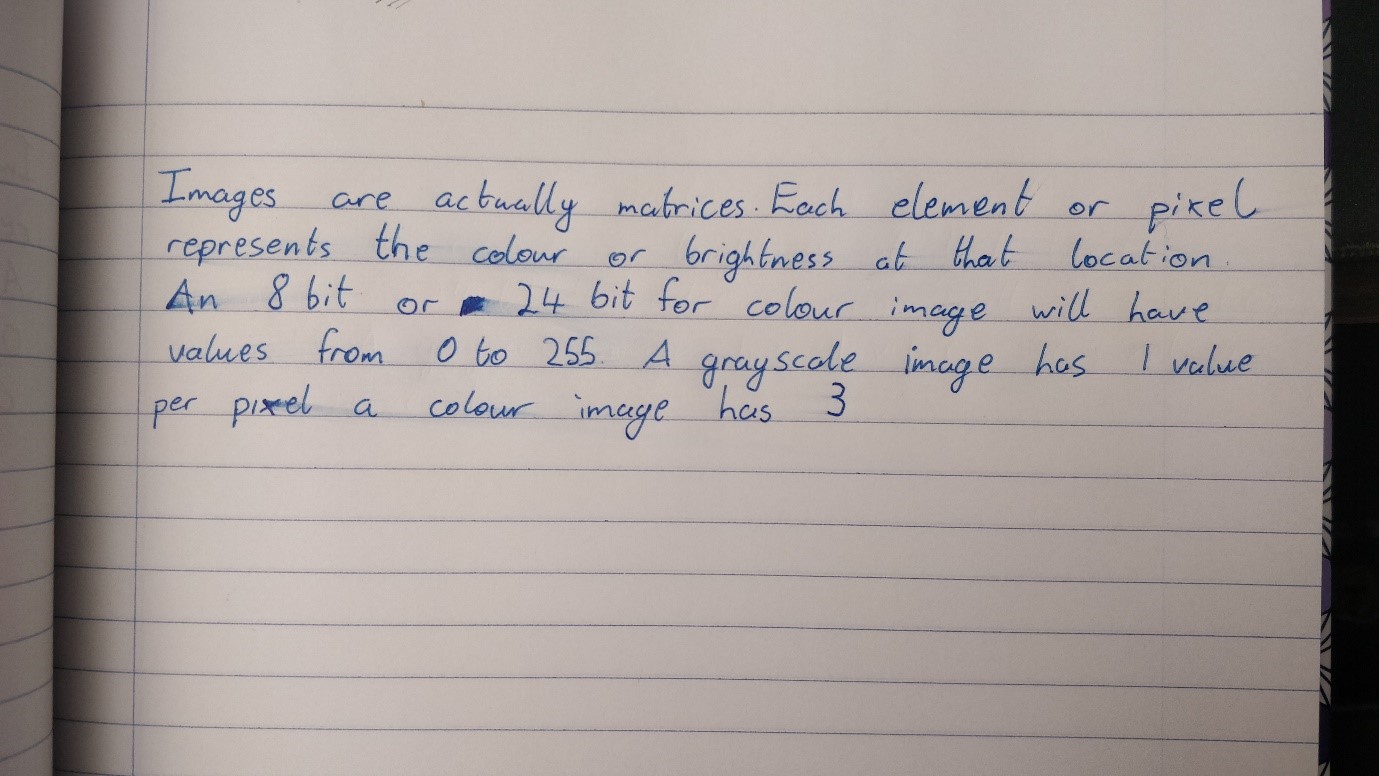 Images are actually matrices. Each element or pixel
represents the colour or brightness at that location.
An 8 bit or 24 bit for colour image will have
values from 0 to 255. A grayscale image has 1 value
per pixel a colour image has 3